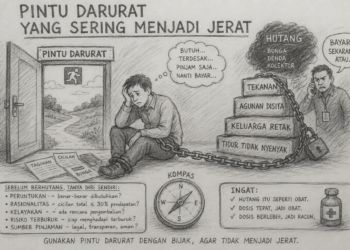 PINTU DARURAT
YANG SERING MENJADI JERAT
PINTU DARURAT
BUTUH...
TERDESAK...
PINJAM SAJA...
NANTI BAYAR...
HUTANG
BUNGA
DENDA
KOLEKTOR
BAYAR
SEKARANG
ATAU...
TEKANAN
AGUNAN DISITA
KELUARGA RETAK
TIDUR TIDAK NYENYAK
TAGIHAN
CICILAN
SEBELUM BERHUTANG, TANYA DIRI SENDIRI:
• PERUNTUKAN – benar-benar dibutuhkan?
• RASIONALITAS – cicilan total ≤ 30% pendapatan?
• KELAYAKAN – ada rencana pengembalian?
• RISIKO TERBURUK – siap menghadapi terburuk?
• SUMBER PINJAMAN – legal, transparan, aman?
KOMPAS
INGAT:
✓ HUTANG ITU SEPERTI OBAT.
✓ DOSIS TEPAT, JADI OBAT.
✓ DOSIS BERLEBIH, JADI RACUN.
GUNAKAN PINTU DARURAT DENGAN BIJAK, AGAR TIDAK MENJADI JERAT.